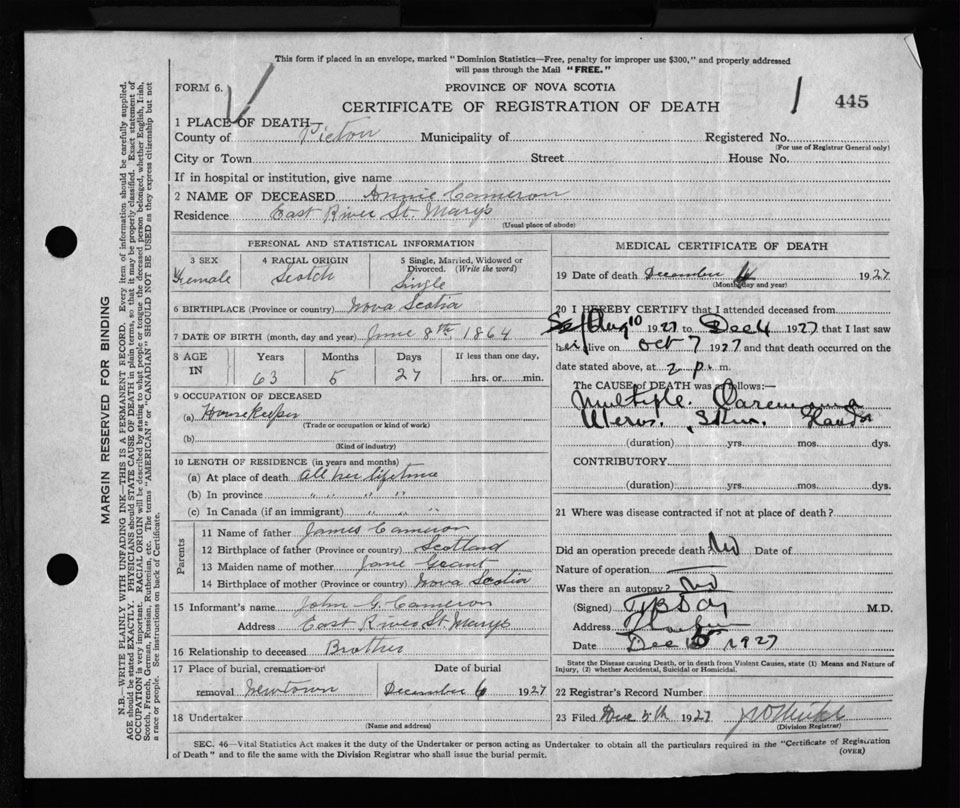 This form if placed in an envelope, marked "Dominion Statistics—Free, penalty for improper use $300," and properly addressed
will pass through the Mail "FREE."
FORM 6.
PROVINCE OF NOVA SCOTIA
CERTIFICATE OF REGISTRATION OF DEATH
1 445
1 PLACE OF DEATH
County of Pictou Municipality of Registered No.
(For use of Registrar General only)
City or Town Street House No.
If in hospital or institution, give name
2 NAME OF DECEASED Annie Cameron
Residence East River St. Marys
(Usual place of abode)
PERSONAL AND STATISTICAL INFORMATION
3 SEX 4 RACIAL ORIGIN 5 Single, Married, Widowed or
Divorced. (Write the word)
Female Scotch Single
6 BIRTHPLACE (Province or country) Nova Scotia
7 DATE OF BIRTH (month, day and year) June 8th 1864
8 AGE IN Years Months Days If less than one day,
63 5 27 hrs. or min.
9 OCCUPATION OF DECEASED
(a) Housekeeper
(Trade or occupation or kind of work)
(b)
(Kind of industry)
10 LENGTH OF RESIDENCE (in years and months)
(a) At place of death All her lifetime
(b) In province " " " "
(c) In Canada (if an immigrant) " " " "
Parents
11 Name of father James Cameron
12 Birthplace of father (Province or country) Scotland
13 Maiden name of mother Jane Grant
14 Birthplace of mother (Province or country) Nova Scotia
15 Informant's name John G. Cameron
Address East River St. Marys
16 Relationship to deceased Brother
17 Place of burial, cremation or Date of burial
removal Newtown December 6 1927
18 Undertaker
(Name and address)
MEDICAL CERTIFICATE OF DEATH
19 Date of death December 4 1927
(Month, day and year)
20 I HEREBY CERTIFY that I attended deceased from
Aug 10 1927 to Dec 4 1927 that I last saw
her alive on Oct 7 1927 and that death occurred on the
date stated above, at 2 p. m.
The CAUSE of DEATH was as follows:—
Multiple Carcinoma
(duration) yrs. mos. dys.
CONTRIBUTORY
(duration) yrs. mos. dys.
21 Where was disease contracted if not at place of death?
Did an operation precede death? No Date of
Nature of operation
Was there an autopsy? No
(Signed) M.D.
Address
Date Dec 5 1927
State the Disease causing Death, or in death from Violent Causes, state (1) Means and Nature of
Injury, (2) whether Accidental, Suicidal or Homicidal.
22 Registrar's Record Number
23 Filed 1927
(Division Registrar)
SEC. 46—Vital Statistics Act makes it the duty of the Undertaker or person acting as Undertaker to obtain all the particulars required in the "Certificate of Registration
of Death" and to file the same with the Division Registrar who shall issue the burial permit. (OVER)
MARGIN RESERVED FOR BINDING
N.B.—WRITE PLAINLY WITH UNFADING INK—THIS IS A PERMANENT RECORD. Every item of information should be carefully supplied.
AGE should be stated EXACTLY. PHYSICIANS should STATE CAUSE OF DEATH in plain terms, so that it may be properly classified. Exact statement of
OCCUPATION is very important. RACIAL ORIGIN will be described by stating to what people or tongue the deceased person belonged, whether English, Irish,
Scotch, French, German, Russian, Ruthenian, etc. The terms "AMERICAN" or "CANADIAN" SHOULD NOT BE USED as they express citizenship but not
a race or people. See instructions on back of Certificate.